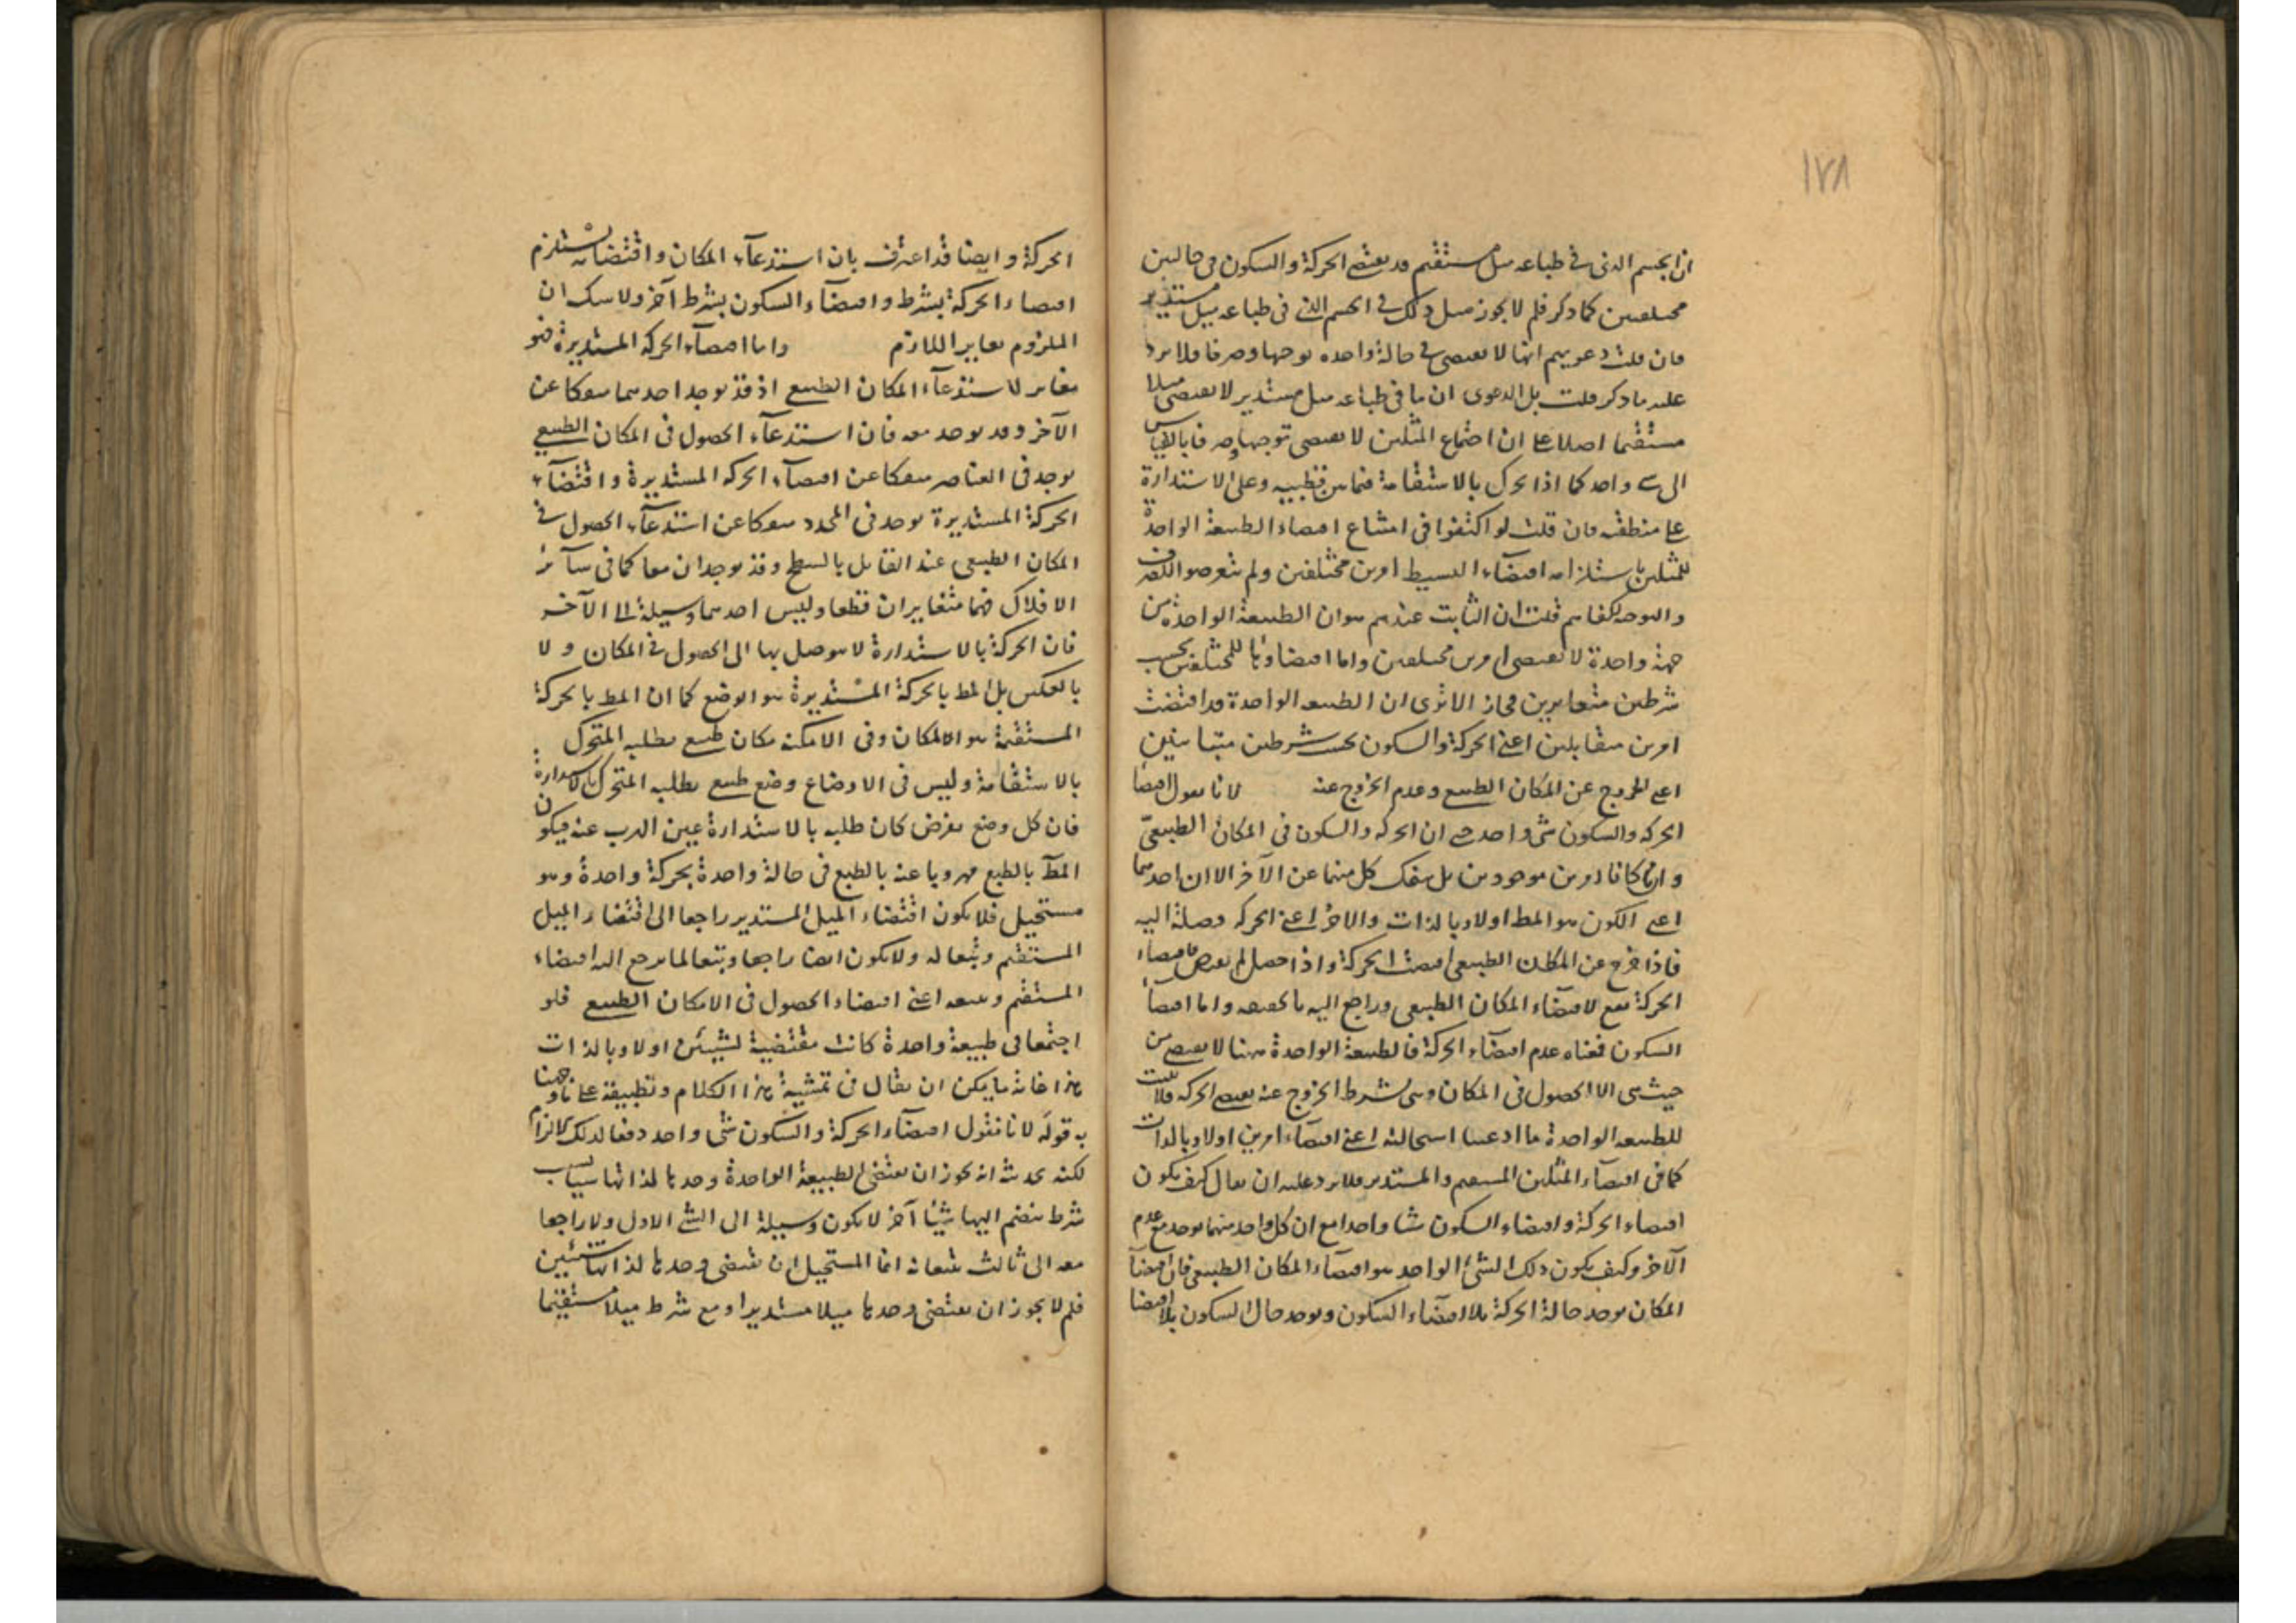 ١٧٨
ان الجسم الذى فى طباعه ميل مستقيم قد يقتضى الحركة والسكون فى حالتين
مختلفتين كما ذكر فلم لا يجوز مثل ذلك فى الجسم الذى فى طباعه ميل مستدير
فان قلت دعويهم انها لا تقتضى فى حالة واحدة توجها وصرفا فلا يرد
عليه ما ذكر قلت بل الدعوى ان ما فى طباعه ميل مستدير لا يقتضى ميلا
مستقيما اصلا على ان اجتماع الميلين لا يقتضى توجها وصرفا بالقياس
الى شى واحد كما اذا تحرك بالاستقامة فيما بين قطبيه وعلى الاستدارة
على منطقته فان قلت لو اكتفوا فى امتناع اقتضاء الطبيعة الواحدة
للميلين باستلزامه اقتضاء البسيط امرين مختلفين ولم يتعرضوا للصرف
والتوجه لكفاهم قلت ان الثابت عندهم هو ان الطبيعة الواحدة من
جهة واحدة لا تقتضى امرين مختلفين واما اقتضاؤها للمختلفين بحسب
شرطين متغايرين فجاز الا ترى ان الطبيعه الواحدة قد اقتضت
امرين متقابلين اعنى الحركة والسكون بحسب شرطين متباينين
اعنى الخروج عن المكان الطبيعى وعدم الخروج عنه لانا نقول اقتضا
الحركه والسكون شى واحد حتى ان الحركه والسكون فى المكان الطبيعى
وان كانا امرين موجودين بل ينفك كل منهما عن الآخر الا ان احدهما
اعنى السكون هو المط اولا وبالذات والاخر اعنى الحركه وصلة اليه
فاذا خرج عن المكان الطبيعى اقتضت الحركة واذا حصل لم تقتض فاقتضاء
الحركة تبع لاقتضاء المكان الطبيعى وراجع اليه بالحقيقه واما اقتضا
السكون فمعناه عدم اقتضاء الحركة فالطبيعة الواحدة ههنا لا تقتضى من
حيث هى الا الحصول فى المكان وهى بشرط الخروج عنه تقتضى الحركه فلا يثبت
للطبيعه الواحدة ما ادعينا استحالته اعنى اقتضاء امرين اولا وبالذات
كما فى اقتضاء الميلين المستقيم والمستدير فلا يرد عليه ان يقال كيف يكون
اقتضاء الحركة واقتضاء السكون شيا واحدا مع ان كل واحد منهما يوجد مع عدم
الآخر وكيف يكون ذلك الشئ الواحد هو اقتضاء المكان الطبيعى فان اقتضا
المكان يوجد حالة الحركة بلا اقتضاء السكون ويوجد حال السكون بلا اقتضا
الحركة وايضا قد اعترف بان استدعاء المكان واقتضائه يستلزم
اقتضاء الحركة بشرط واقتضاء السكون بشرط آخر ولا شك ان
الملزوم يغاير اللازم واما اقتضاء الحركه المستديرة فهو
مغاير لاستدعاء المكان الطبيعى اذ قد يوجد احدهما منفكا عن
الآخر وقد يوجد معه فان استدعاء الحصول فى المكان الطبيعى
يوجد فى العناصر منفكا عن اقتضاء الحركه المستديرة واقتضاء
الحركة المستديرة يوجد فى المحدد منفكا عن استدعاء الحصول فى
المكان الطبيعى عند القائل بالسطح وقد يوجدان معا كما فى سائر
الافلاك فهما متغايران قطعا وليس احدهما وسيلة الى الآخر
فان الحركة بالاستدارة لا يتوصل بها الى الحصول فى المكان ولا
بالعكس بل المط بالحركة المستديرة هو الوضع كما ان المط بالحركة
المستقيمة هو المكان وفى الامكنه مكان طبيعى يطلبه المتحرك
بالاستقامة وليس فى الاوضاع وضع طبيعى يطلبه المتحرك بالاستدارة
فان كل وضع يفرض كان طلبه بالاستدارة عين الهرب عنه فيكون
المط بالطبع مهروبا عنه بالطبع فى حالة واحدة بحركة واحدة وهو
مستحيل فلا يكون اقتضاء الميل المستدير راجعا الى اقتضاء الميل
المستقيم وتبعا له ولا يكون ايضا راجعا وتبعا لما يرجع اليه اقتضاء
المستقيم ويتبعه اعنى اقتضاء الحصول فى الامكان الطبيعى فلو
اجتمعا فى طبيعة واحدة كانت مقتضية لشيئين اولا وبالذات
هذا غاية ما يمكن ان يقال فى تمشية هذا الكلام وتطبيقه على ما وجهنا
به قوله لانا نقول اقتضاء الحركة والسكون شى واحد دفعا لذلك الالزام
لكنه يحدث انه يجوز ان يقتضى الطبيعة الواحدة وحدها لذاتها شيا وبسبب
شرط ينضم اليها شيئا آخر لا يكون وسيلة الى الشئ الاول ولا راجعا
معه الى ثالث يتبعانه انما المستحيل ان تقتضى وحدها لذاتها شيئين
فلم لا يجوز ان يقتضى وحدها ميلا مستديرا ومع شرط ميلا مستقيما